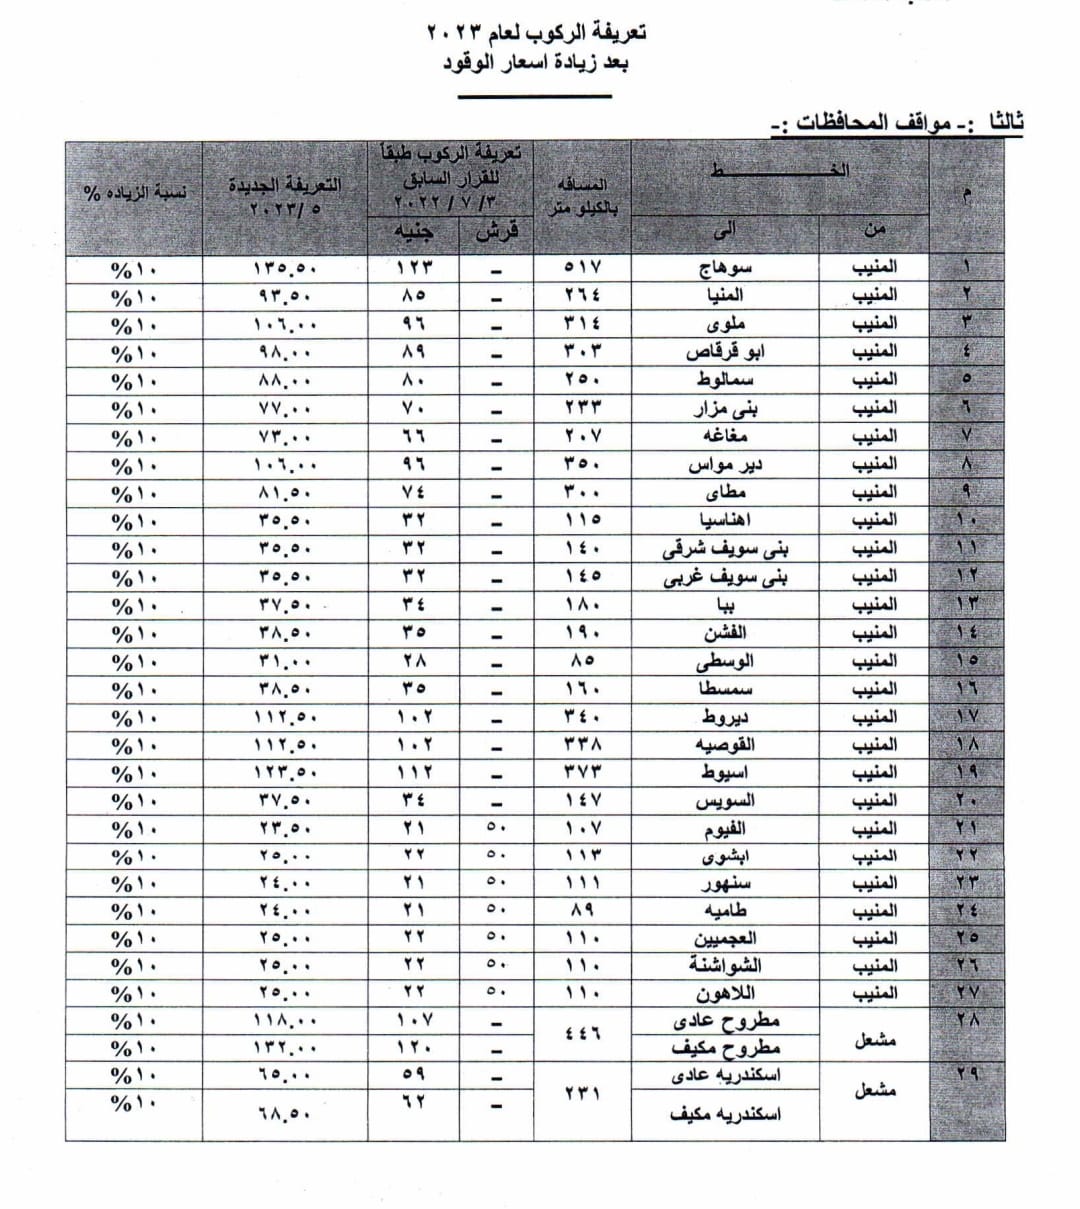 تعريفة الركوب لعام ٢٠٢٣
بعد زيادة اسعار الوقود
ثالثا :- مواقف المحافظات :-
م الخط المسافه بالكيلو متر تعريفة الركوب طبقاً للقرار السابق ٢٠٢٢/٧/٣ التعريفة الجديدة ٢٠٢٣/٥ نسبة الزياده %
من الى قرش جنيه
١ المنيب سوهاج ٥١٧ – ١٢٣ ١٣٥,٥٠ ١٠%
٢ المنيب المنيا ٢٦٤ – ٨٥ ٩٣,٥٠ ١٠%
٣ المنيب ملوى ٣١٤ – ٩٦ ١٠٦,٠٠ ١٠%
٤ المنيب ابو قرقاص ٣٠٣ – ٨٩ ٩٨,٠٠ ١٠%
٥ المنيب سمالوط ٢٥٠ – ٨٠ ٨٨,٠٠ ١٠%
٦ المنيب بنى مزار ٢٣٣ – ٧٠ ٧٧,٠٠ ١٠%
٧ المنيب مغاغه ٢٠٧ – ٦٦ ٧٣,٠٠ ١٠%
٨ المنيب دير مواس ٣٥٠ – ٩٦ ١٠٦,٠٠ ١٠%
٩ المنيب مطاى ٣٠٠ – ٧٤ ٨١,٥٠ ١٠%
١٠ المنيب اهناسيا ١١٥ – ٣٢ ٣٥,٥٠ ١٠%
١١ المنيب بنى سويف شرقى ١٤٠ – ٣٢ ٣٥,٥٠ ١٠%
١٢ المنيب بنى سويف غربى ١٤٥ – ٣٢ ٣٥,٥٠ ١٠%
١٣ المنيب ببا ١٨٠ – ٣٤ ٣٧,٥٠ ١٠%
١٤ المنيب الفشن ١٩٠ – ٣٥ ٣٨,٥٠ ١٠%
١٥ المنيب الوسطى ٨٥ – ٢٨ ٣١,٠٠ ١٠%
١٦ المنيب سمسطا ١٦٠ – ٣٥ ٣٨,٥٠ ١٠%
١٧ المنيب ديروط ٣٤٠ – ١٠٢ ١١٢,٥٠ ١٠%
١٨ المنيب القوصيه ٣٣٨ – ١٠٢ ١١٢,٥٠ ١٠%
١٩ المنيب اسيوط ٣٧٣ – ١١٢ ١٢٣,٥٠ ١٠%
٢٠ المنيب السويس ١٤٧ – ٣٤ ٣٧,٥٠ ١٠%
٢١ المنيب الفيوم ١٠٧ ٥٠ ٢١ ٢٣,٥٠ ١٠%
٢٢ المنيب ابشوى ١١٣ ٥٠ ٢٢ ٢٥,٠٠ ١٠%
٢٣ المنيب سنهور ١١١ ٥٠ ٢١ ٢٤,٠٠ ١٠%
٢٤ المنيب طاميه ٨٩ ٥٠ ٢١ ٢٤,٠٠ ١٠%
٢٥ المنيب العجميين ١١٠ ٥٠ ٢٢ ٢٥,٠٠ ١٠%
٢٦ المنيب الشواشنة ١١٠ ٥٠ ٢٢ ٢٥,٠٠ ١٠%
٢٧ المنيب اللاهون ١١٠ ٥٠ ٢٢ ٢٥,٠٠ ١٠%
٢٨ مشعل مطروح عادى ٤٤٦ – ١٠٧ ١١٨,٠٠ ١٠%
مطروح مكيف – ١٢٠ ١٣٢,٠٠ ١٠%
٢٩ مشعل اسكندريه عادى ٢٣١ – ٥٩ ٦٥,٠٠ ١٠%
اسكندريه مكيف – ٦٢ ٦٨,٥٠ ١٠%